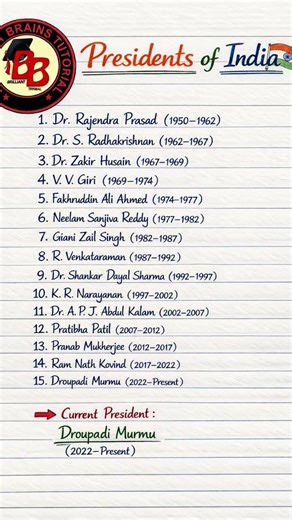 BRAINS TUTORIAL
BB
BRILLIANT
Presidents of India
1. Dr. Rajendra Prasad (1950–1962)
2. Dr. S. Radhakrishnan (1962–1967)
3. Dr. Zakir Husain (1967–1969)
4. V. V. Giri (1969–1974)
5. Fakhruddin Ali Ahmed (1974–1977)
6. Neelam Sanjiva Reddy (1977–1982)
7. Giani Zail Singh (1982–1987)
8. R. Venkataraman (1987–1992)
9. Dr. Shankar Dayal Sharma (1992–1997)
10. K. R. Narayanan (1997–2002)
11. Dr. A. P. J. Abdul Kalam (2002–2007)
12. Pratibha Patil (2007–2012)
13. Pranab Mukherjee (2012–2017)
14. Ram Nath Kovind (2017–2022)
15. Droupadi Murmu (2022–Present)
Current President :
Droupadi Murmu
(2022–Present)